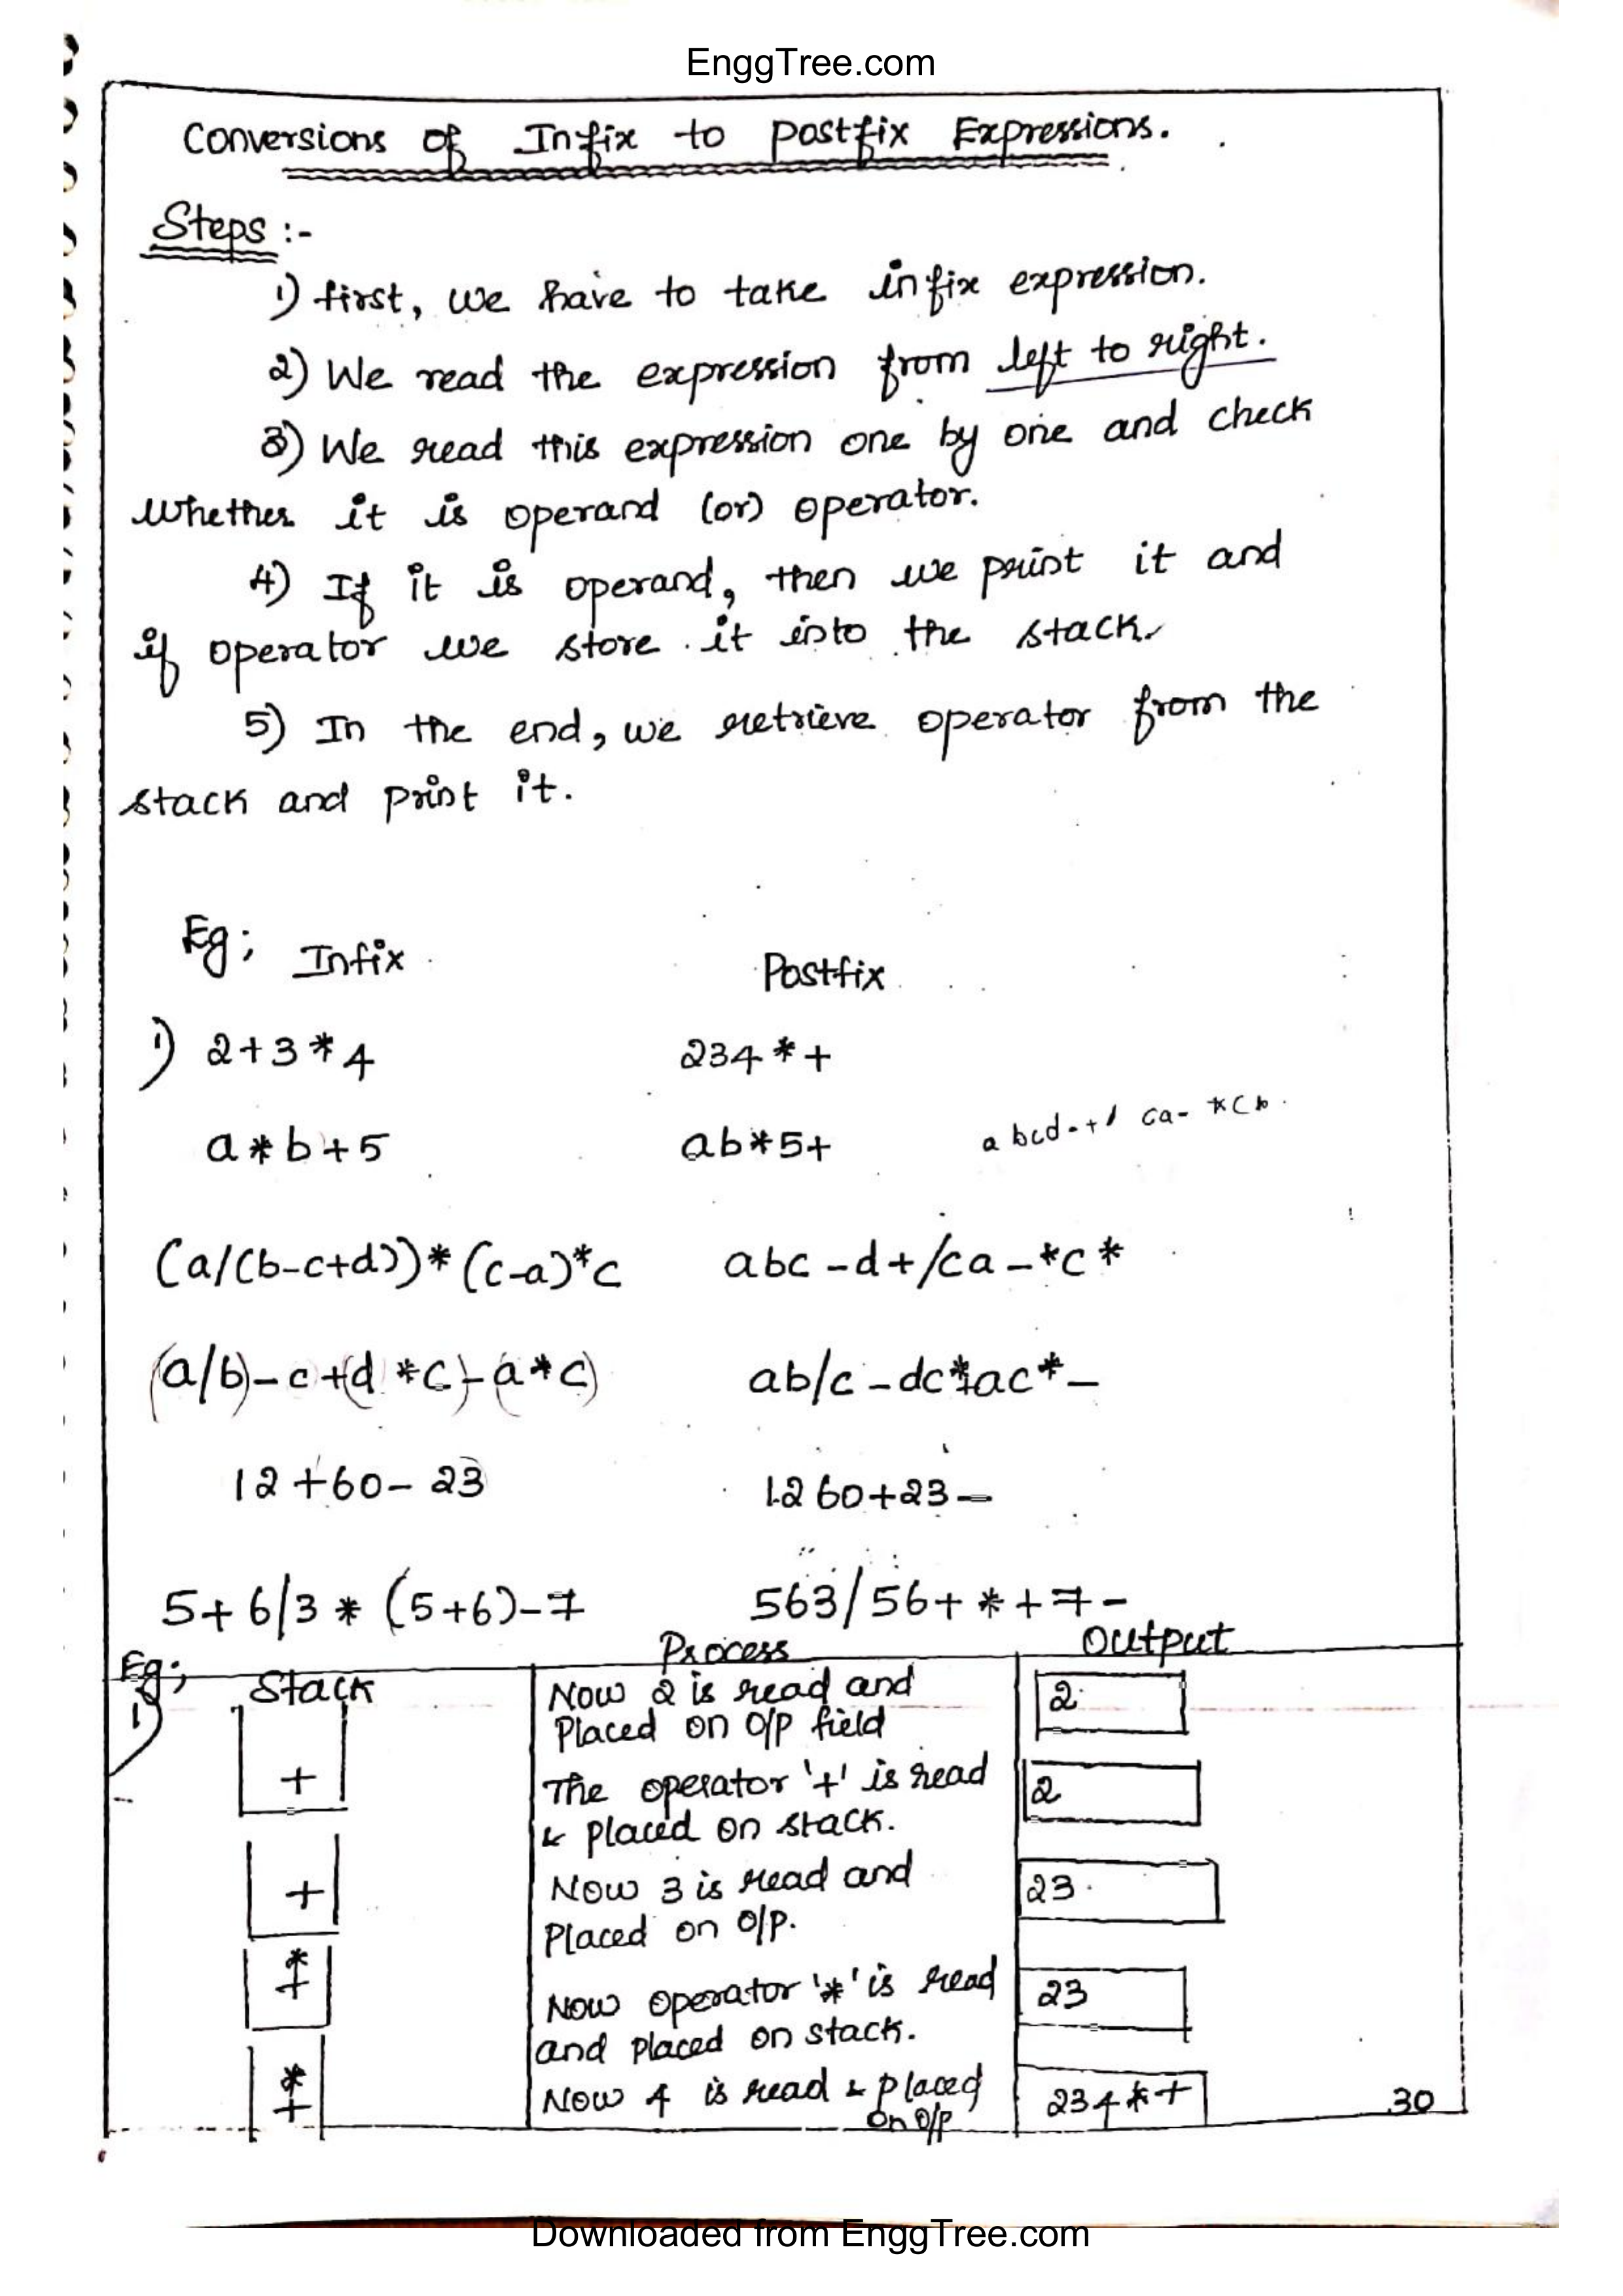 EnggTree.com
Conversions of Infix to Postfix Expressions.
Steps :-
1) first, we have to take infix expression.
2) We read the expression from left to right.
3) We read this expression one by one and check
whether it is operand (or) operator.
4) If it is operand, then we print it and
if operator we store it into the stack.
5) In the end, we retrieve operator from the
stack and print it.
Eg; Infix Postfix
1) 2+3*4 234*+
a*b+5 ab*5+ a bcd-+/ ca-
(a/(b-c+d))*(c-a)*c abc-d+/ca-*c*
(a/b)-c+(d*c)-(a*c) ab/c-dc*+ac*-
12+60-23 12 60+23-
5+6/3*(5+6)-7 563/56+*+7-
Eg; Stack Process Output
1) Now 2 is read and 2
Placed on O/P field
+ The operator '+' is read 2
& placed on stack.
+ Now 3 is read and 23
Placed on O/P.
* + Now operator '*' is read 23
and placed on stack.
* + Now 4 is read & placed 234*+ 30
on O/P
Downloaded from EnggTree.com